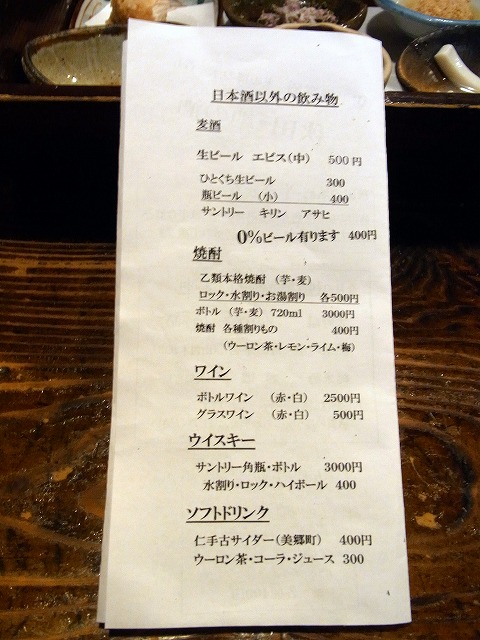 日本酒以外の飲み物
麦酒
生ビール エビス(中) 500円
ひとくち生ビール 300
瓶ビール (小) 400
サントリー キリン アサヒ
0%ビール有ります 400円
焼酎
乙類本格焼酎 (芋・麦)
ロック・水割り・お湯割り 各500円
ボトル (芋・麦) 720ml 3000円
焼酎 各種割りもの 400円
(ウーロン茶・レモン・ライム・梅)
ワイン
ボトルワイン (赤・白) 2500円
グラスワイン (赤・白) 500円
ウイスキー
サントリー角瓶・ボトル 3000円
水割り・ロック・ハイボール 400
ソフトドリンク
仁手古サイダー(美郷町) 400円
ウーロン茶・コーラ・ジュース 300